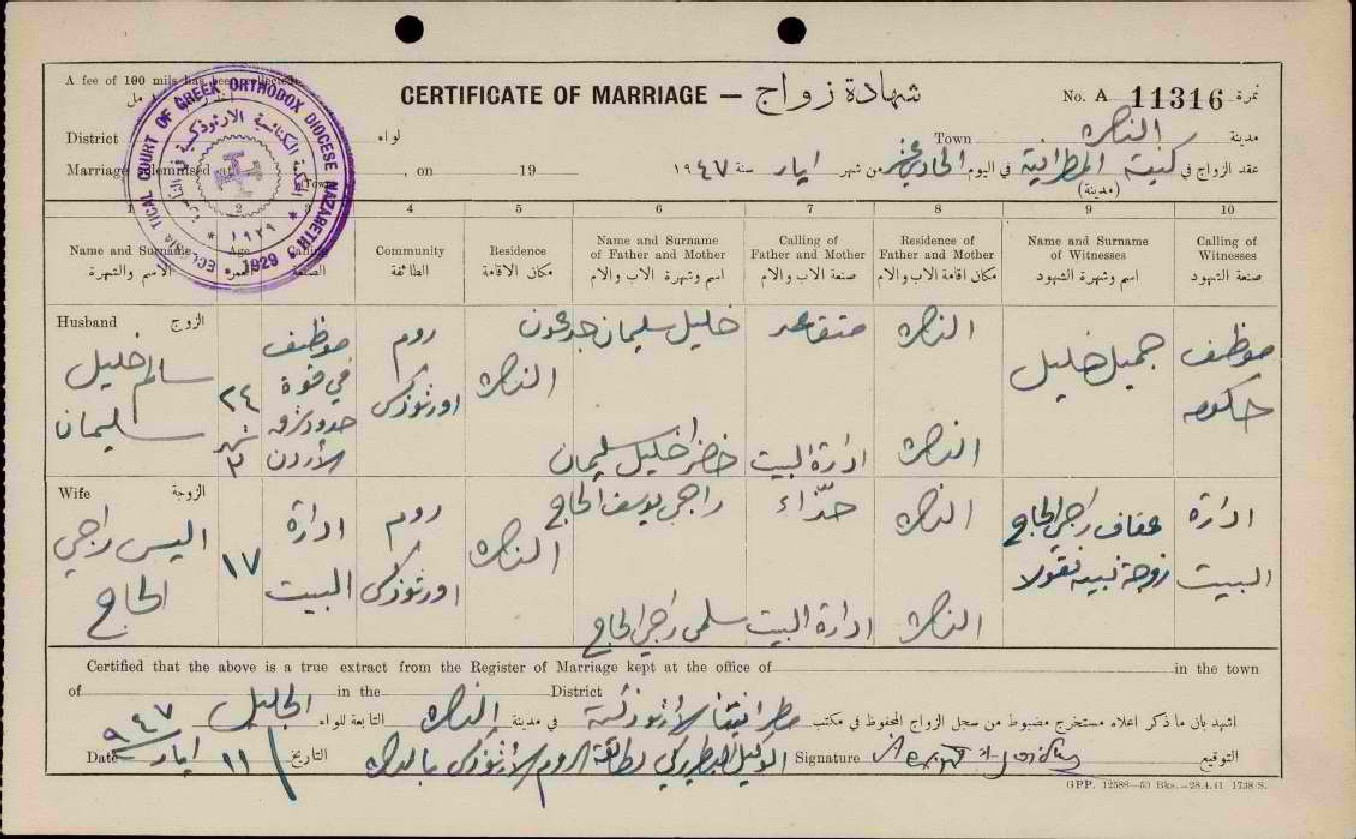 A fee of 100 mils has been collected
CERTIFICATE OF MARRIAGE — شهادة زواج
No. A 11316 نمرة
District لواء
Town الناصره مدينة
Marriage solemnised at , on 19
عقد الزواج في كنيسة المطرانية في اليوم الحادي عشر من شهر ايار سنة ١٩٤٧
(Town) (مدينة)
ECCLESIASTICAL COURT OF GREEK ORTHODOX DIOCESE NAZARETH 1929
المحكمة الكنائسية الارثوذكسية في الناصرة
١٩٢٩
1 2 3 4 5 6 7 8 9 10
Name and Surname الاسم والشهرة
Age العمر
Calling الصنعة
Community الطائفة
Residence مكان الاقامة
Name and Surname of Father and Mother اسم وشهرة الاب والام
Calling of Father and Mother صنعة الاب والام
Residence of Father and Mother مكان اقامة الاب والام
Name and Surname of Witnesses اسم وشهرة الشهود
Calling of Witnesses صنعة الشهود
Husband الزوج
سالم خليل سليمان
٢٤
شهر ٣
موظف في قوة حدود شرق الأردن
روم اورثوذكس
الناصره
خليل سليمان جدعون
متقاعد
الناصره
جميل خليل
موظف حكومه
خضرا خليل سليمان
ادارة البيت
الناصره
Wife الزوجة
اليس راجي الحاج
١٧
ادارة البيت
روم اورثوذكس
الناصره
راجي يوسف الحاج
حذّاء
الناصره
عفاف راجي الحاج
زوجة نبيه نقولا
ادارة البيت
سلمى راجي الحاج
ادارة البيت
الناصره
Certified that the above is a true extract from the Register of Marriage kept at the office of in the town
of in the District
اشهد بان ما ذكر اعلاه مستخرج مضبوط من سجل الزواج المحفوظ في مكتب مطرانيتنا الأرثوذكسية في مدينة الناصره التابعة للواء الجليل
Date ١١ ايار ٩٤٧ التاريخ
الوكيل البطريركي لطائفة الروم الأرثوذكس بالناصره
Signature التوقيع
GPP. 12588—50 Bks.—28.4.41 1738/S.